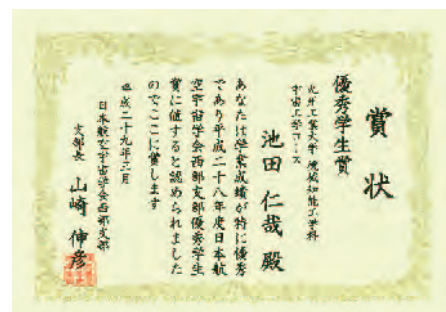 賞状
優秀学生賞
九州工業大学 機械知能工学科
宇宙工学コース
池田 仁哉 殿
あなたは学業成績が特に優秀
であり平成二十八年度日本航
空宇宙学会西部支部優秀学生
賞に値すると認められました
のでここに賞します
平成二十九年三月
日本航空宇宙学会西部支部
支部長 山崎 伸彦